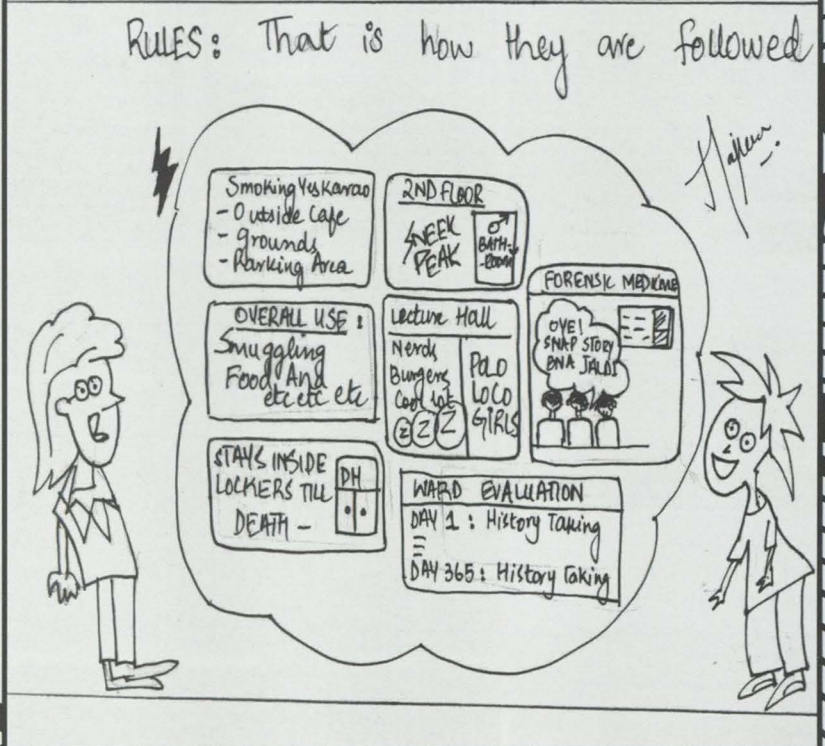 RULES: That is how they are followed
Smoking Yes Karao
- Outside Cafe
- Grounds
- Parking Area
2ND FLOOR
SNEEK
PEAK
BATH-
-ROOM
FORENSIC MEDICINE
OYE!
SNAP STORY
BNA JALDI
OVERALL USE:
Smuggling
Food And
etc etc etc
Lecture Hall
Nerds
Burgers
Cool lot
Z Z Z
POLO
LOCO
GIRLS
STAYS INSIDE
LOCKERS TILL
DEATH -
DH
WARD EVALUATION
DAY 1 : History Taking
DAY 365 : History Taking